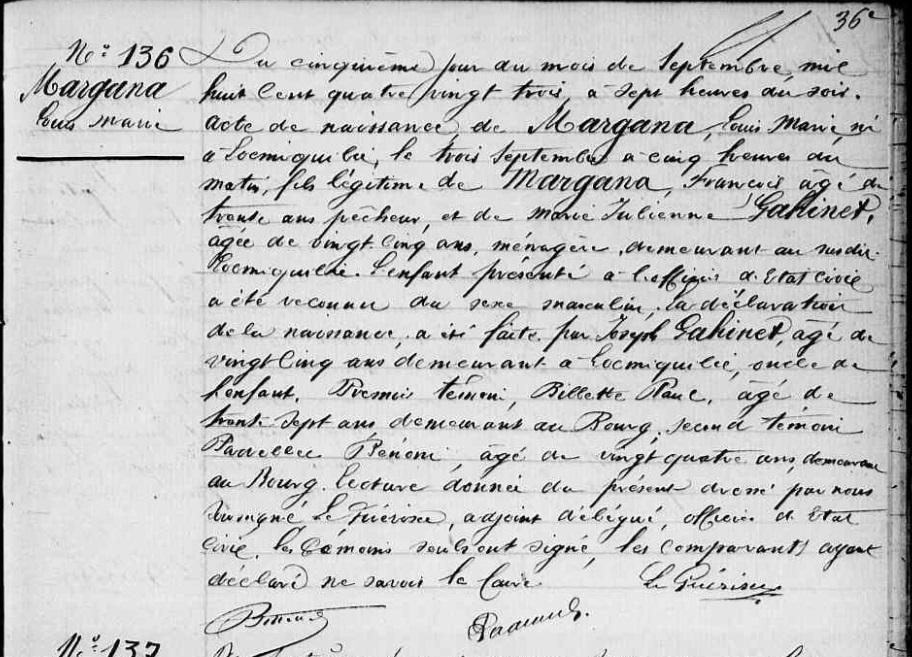 36e
Nº 136
Margana
Louis Marie
Du cinquième jour du mois de Septembre, mil
huit cent quatre vingt trois, à sept heures du soir.
acte de naissance, de Margana, Louis Marie né
à Locmiquélic, le trois Septembre à cinq heures du
matin, fils légitime de Margana, François âgé de
trente ans pêcheur, et de Marie Julienne Gahinet,
âgée de vingt cinq ans, ménagère, demeurant au susdit
Locmiquélic. L'enfant présenté à l'officier d'Etat Civil
a été reconnu du sexe masculin, la déclaration
de la naissance, a été faite par Joseph Gahinet, âgé de
vingt cinq ans demeurant à Locmiquélic, oncle de
l'enfant. Premier témoin, Billette Paul, âgé de
trente sept ans demeurant au Bourg, second témoin
âgé de vingt quatre ans, demeurant
au Bourg. Lecture donnée du présent dressé par nous
soussigné, Le adjoint délégué, officier d'Etat
Civil, les témoins seuls ont signé, les comparants ayant
déclaré ne savoir le faire.
Nº 137